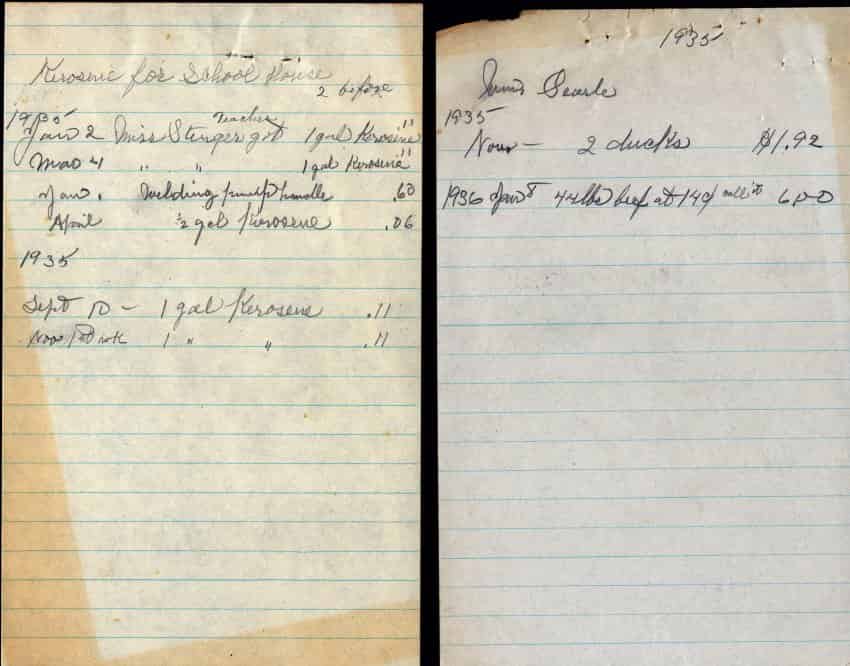 Kerosine for School House
2 before
1935 Teacher
Jan 2 Miss Stenger got 1 gal Kerosine 11
Mar 4 " " 1 gal Kerosine 11
Jan. Welding pump handle .60
April ½ gal Kerosene .06
1935
Sept 10 - 1 gal Kerosene .11
Nov 1 " " .11
1935
Searle
1935
Nov - 2 ducks $1.92
1936 Jan 8 44 lbs beef at 14¢ call it 6.00